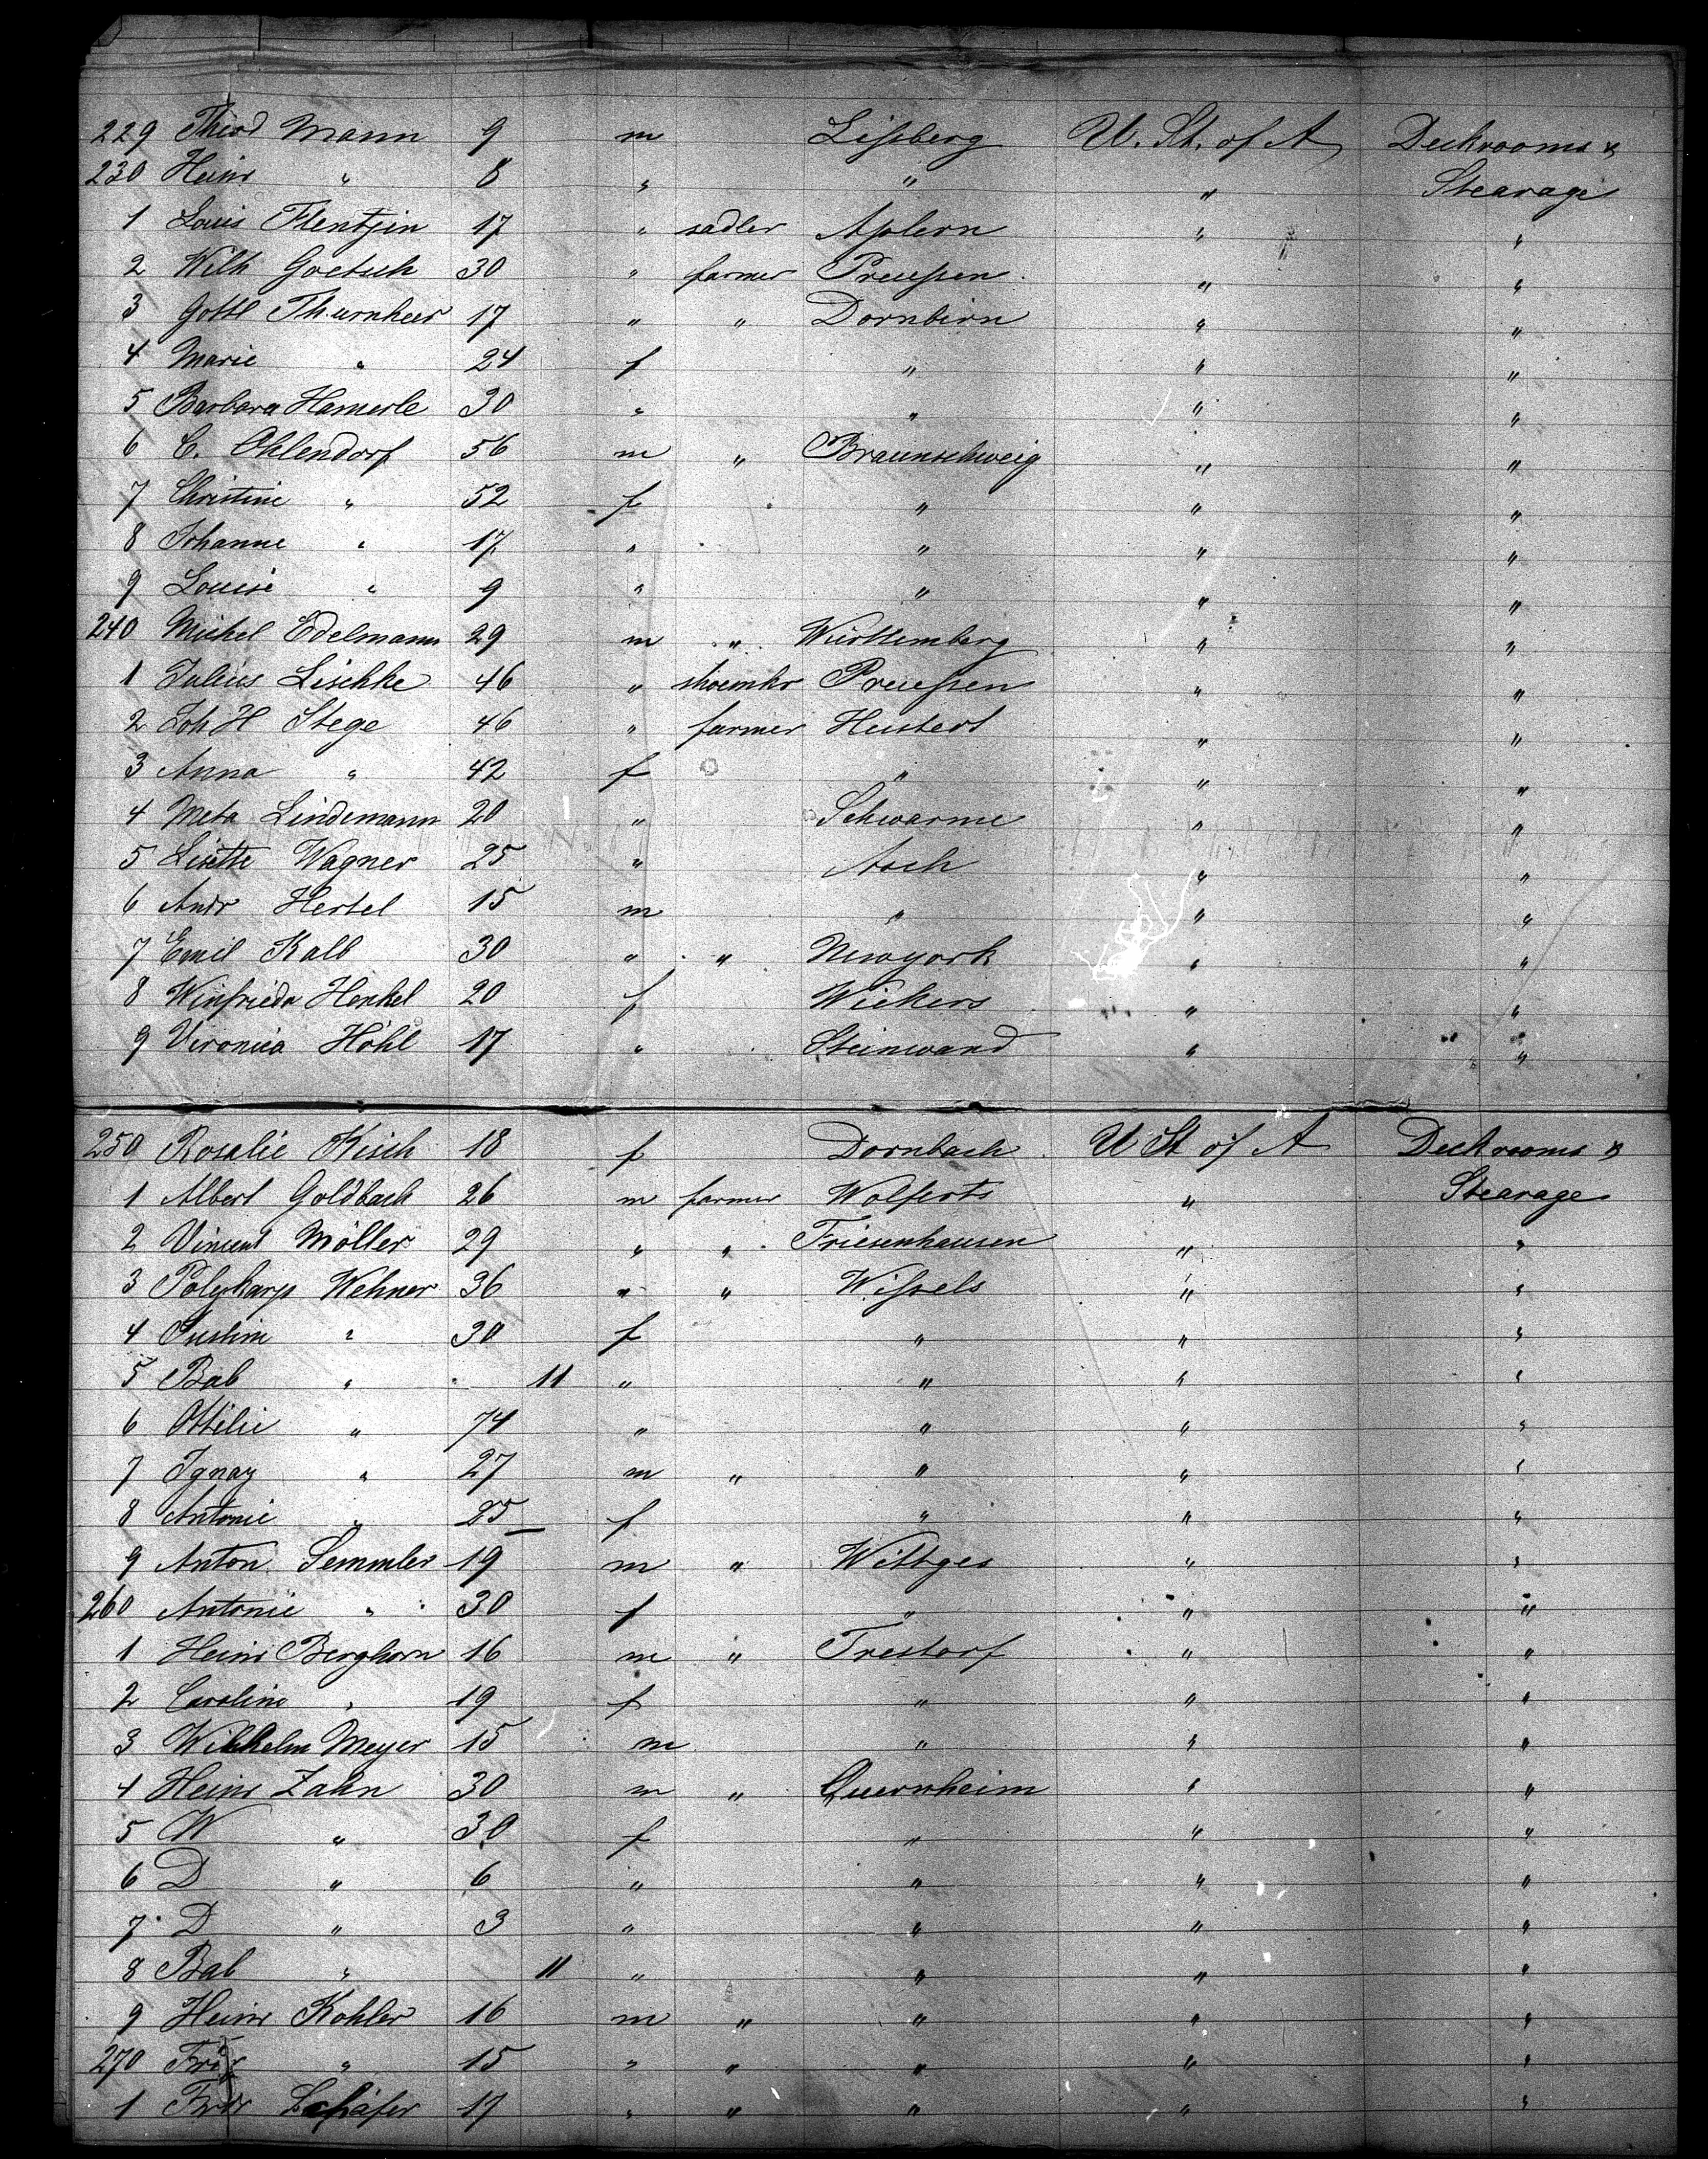 229 Theod Mann 9 m Lissberg U. St. of A Deckrooms &
230 Heinr " 8 " " " Stearage
1 Louis Flentjin 17 " sadler Aplern " "
2 Wilh Goetsch 30 " farmer Preussen " "
3 Gottl Thurnheer 17 " " Dornbirn " "
4 Marie " 24 f " " "
5 Barbara Hamerle 30 " " " "
6 C. Ohlendorf 56 m " Braunschweig " "
7 Christine " 52 f " " "
8 Johanne " 17 " " " "
9 Louise " 9 " " " "
240 Michel Edelmann 29 m " Württemberg " "
1 Julius Lischke 46 " shoemkr Preussen " "
2 Joh H Stege 46 " farmer Heustedt " "
3 Anna " 42 f " " "
4 Meta Lindemann 20 " Schwarme " "
5 Lisette Wagner 25 " Asch " "
6 Andr Hertel 15 m " " "
7 Emil Kalb 30 " " Newyork " "
8 Winfrieda Henkel 20 f Wickers " "
9 Veronica Höhl 17 " Steinwand " "
250 Rosalie Kisch 18 f Dornbach U St of A Deckrooms &
1 Albert Goldbach 26 m farmer Wolferts " Stearage
2 Vincent Möller 29 " " Friesenhausen " "
3 Polykarp Wehner 36 " " Wissels " "
4 Justine " 30 f " " "
5 Bab " 11 " " " "
6 Ottilie " 74 " " " "
7 Ignaz " 27 m " " " "
8 Antonie " 25 f " " "
9 Anton Semmler 19 m " Wittges " "
260 Antonie " 30 f " " "
1 Heinr Berghorn 16 m " Trestorf " "
2 Caroline " 19 f " " "
3 Wilhelm Meyer 15 m " " "
4 Heinr Zahn 30 m " Quernheim " "
5 W " 30 f " " "
6 D " 6 " " " "
7 D " 3 " " " "
8 Bab " 11 " " " "
9 Heinr Kohler 16 m " " " "
270 " 15 " " " " "
1 Schäfer 17 " " " " "